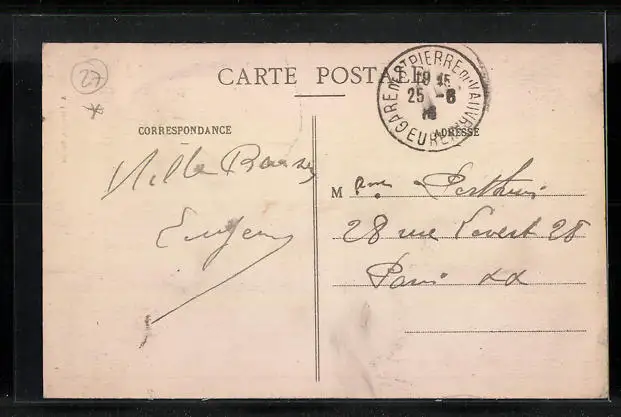 27
CARTE POSTALE
GARE DE ST PIERRE DU VAUVRAY EURE
19 15
25 -6
CORRESPONDANCE
ADRESSE
Mille Baisers
Eugène
M me
28 rue Pavert 28
Paris XX